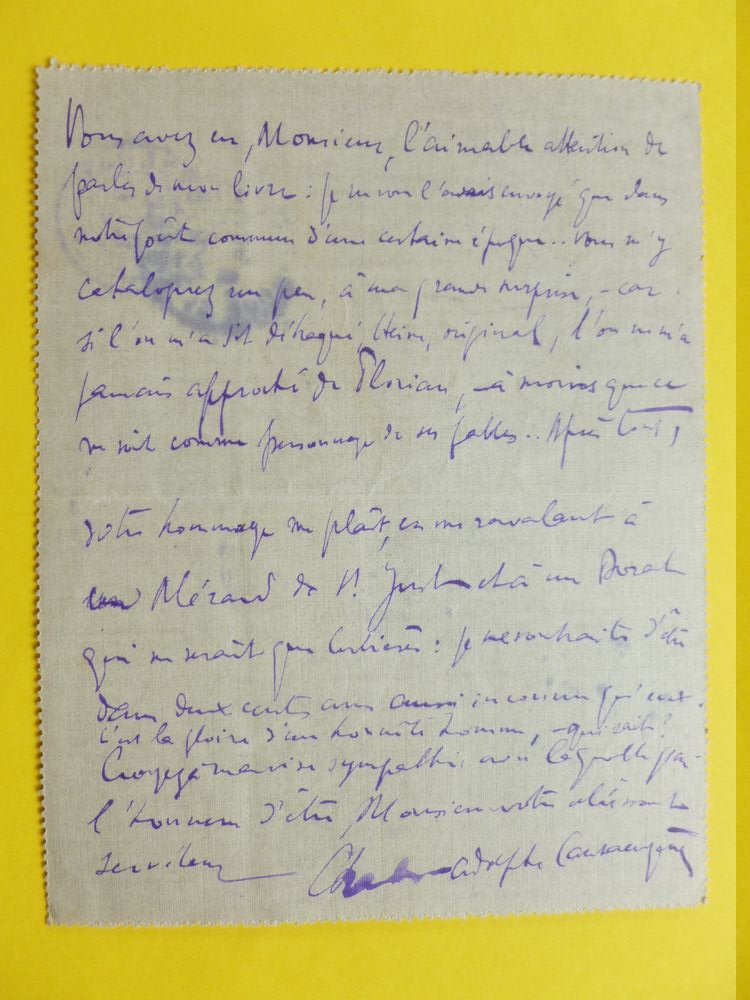 Vous avez eu, Monsieur, l'aimable attention de
parler de mon livre : je ne vous l'avais envoyé que dans
notre goût commun d'une certaine époque.. Vous m'y
cataloguez un peu, à ma grande surprise, - car
si l'on m'a dit détraqué, original, l'on ne m'a
jamais approché de Florian, - à moins que ce
ne soit comme personnage de ses fables.. Après tout,
votre hommage me plaît, en me ravalant à
un Mérard de St Just et à un Dorat
qui ne serait que : je me souhaite d'être
dans deux cents ans aussi inconnu qu'eux.
c'est la gloire d'un honnête homme, - qui sait?
Croyez à ma vive sympathie avec laquelle j'ai
l'honneur d'être, Monsieur votre obéissant
serviteur Adolphe